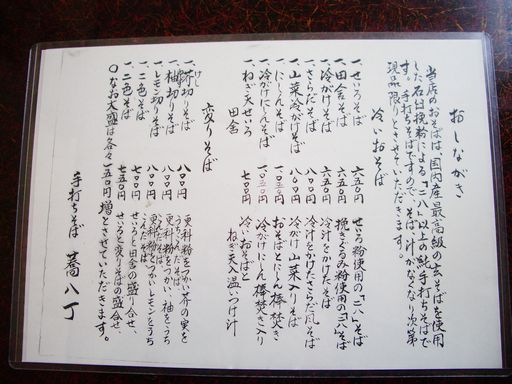 おしながき
当店のおそばは、国内産最高級の玄そばを使用
した石臼挽粉による「二八」以上の純手打ちそばで
す。手打ちそばですので、そば、汁がなくなり次第
現品限りとさせていただきます。
冷いおそば
一、せいろそば 六五〇 せいろ粉使用の「二八」そば
一、田舎そば 六五〇 挽きぐるみ粉使用の「二八」そば
一、冷がけそば 六五〇 冷汁をかけたそば
一、さらだそば 八〇〇 冷汁をかけたさらだ風そば
一、山菜冷がけそば 八〇〇 冷がけ山菜入りそば
一、にしんそば 一、〇五〇 おそばとにしん棒焚き
一、冷がけにしんそば 一、〇五〇 冷がけにしん棒焚き入り
一、ねぎ天せいろ 七〇〇 冷いおそばと
田舎 ねぎ天入温いつけ汁
変りそば
けし
一、芥切りそば 八〇〇 更科粉をつかい芥の実を
うちこんだそば
一、柚切りそば 八〇〇 更科粉をつかい、柚をうち
こんだそば
一、レモン切りそば 八〇〇 更科粉をつかいレモンをうち
こんだそば
一、二色そば 七〇〇 せいろと田舎の盛り合せ、
一、二色そば 七五〇 せいろと変りそばの盛合せ、
〇なお大盛は各々一五〇円増とさせていただきます。
手打ちそば 蕎八丁